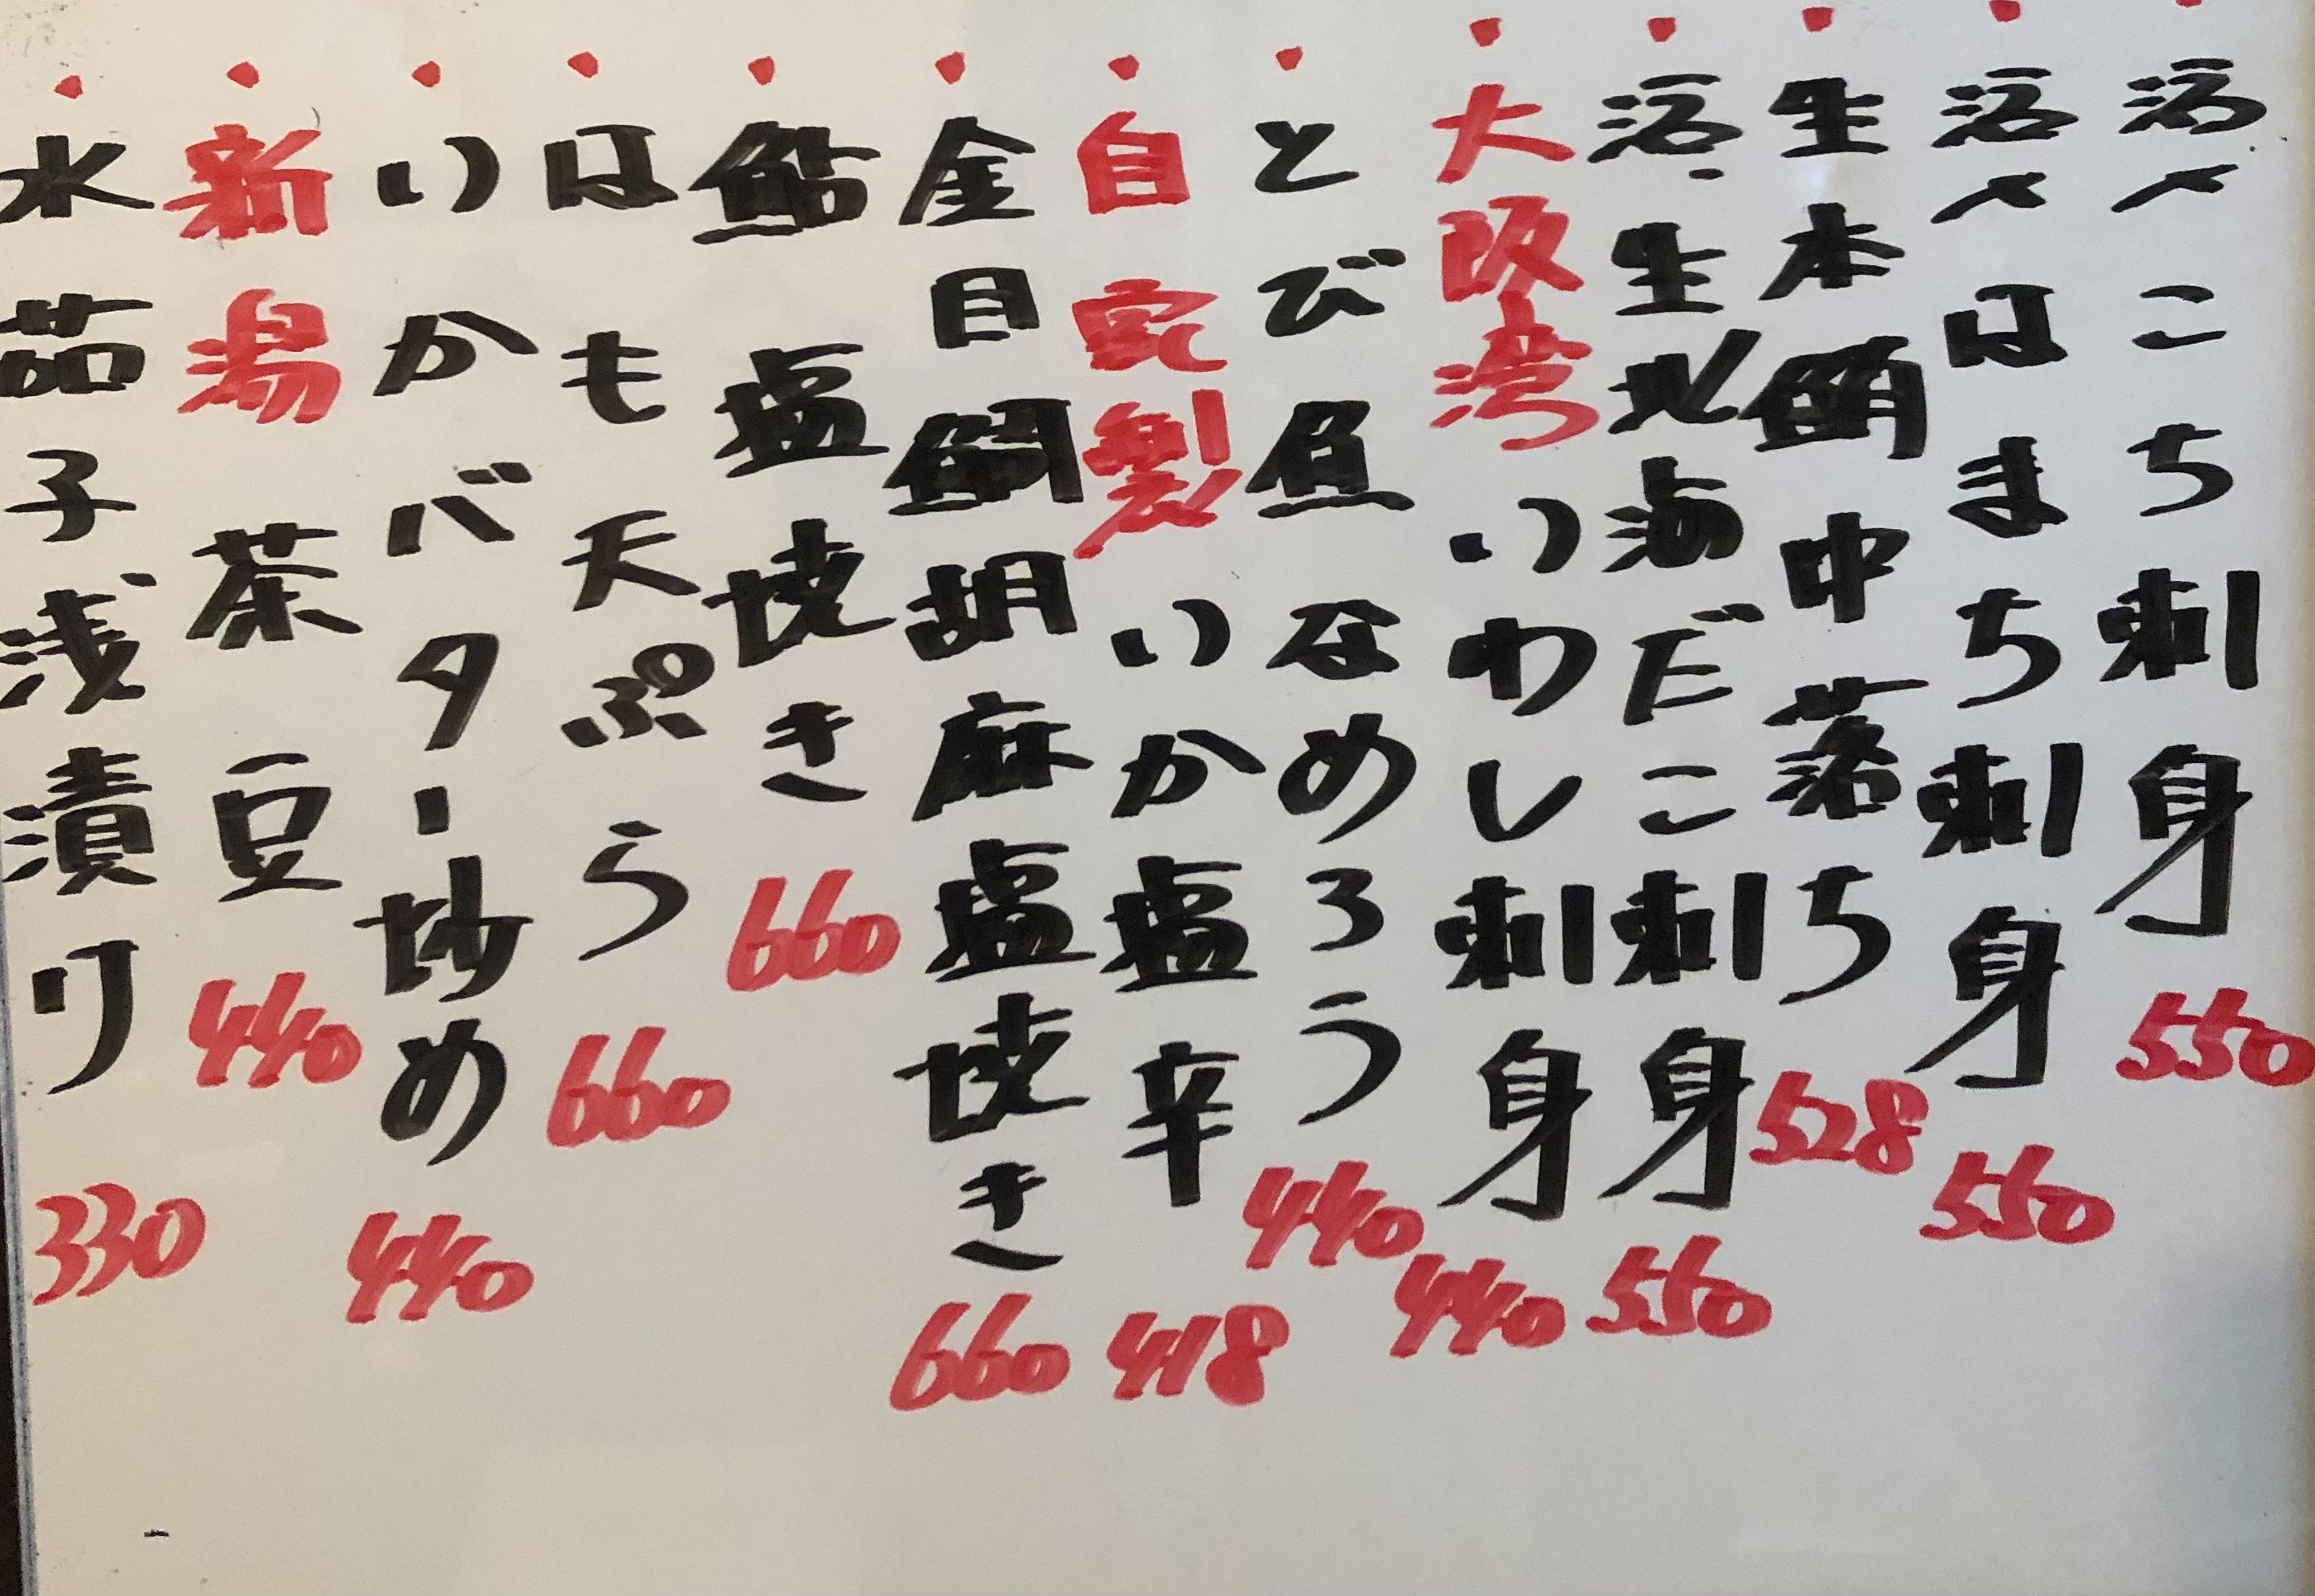 ・活〆こち刺身 550
・活〆はまち刺身 550
・生本鮪中落ち 528
・活・生北海だこ刺身 550
・大阪湾いわし刺身 440
・とび魚なめろう 440
・自家製いか塩辛 418
・金目鯛胡麻塩焼き 660
・鮎塩焼き 660
・はも天ぷら 660
・いかバター炒め 440
・新潟茶豆 440
・水茄子浅漬け 330